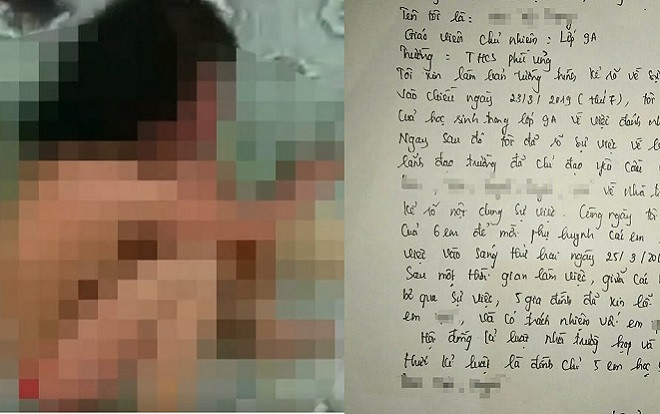 Tên tôi là :
Giáo viên chủ nhiệm : Lớp 9A
Trường : THCS phù ủng
Tôi xin làm bản tường trình kể rõ về sự
Vào chiều ngày 23/3/2019 (thứ 7), tôi
Của học sinh trong lớp 9A về việc đánh
Ngay sau đó tôi đã sự việc về
lãnh đạo trường để chỉ đạo yêu cầu
về nhà
kể rõ nội dung sự việc. Cùng ngày tôi
Của 6 em để mời phụ huynh các em
việc vào sáng thứ hai ngày 25/3/20
Sau một thời gian làm việc, giữa các
bỏ qua sự việc, 5 gia đình đã xin lỗi
em , và có trách nhiệm với em
Hội đồng kỉ luật nhà trường họp và
thức kỉ luật là đình chỉ 5 em học